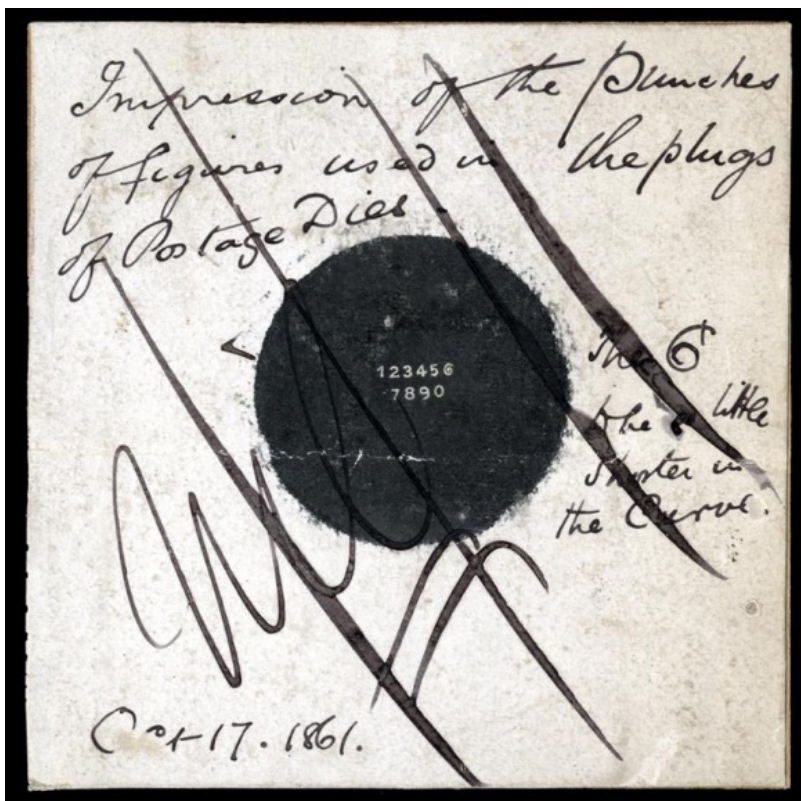 Impression of the punches
of figures used in the plugs
of Postage Dies
123456
7890
The 6
the a little
shorter in
the Curve.
Oct 17. 1861.